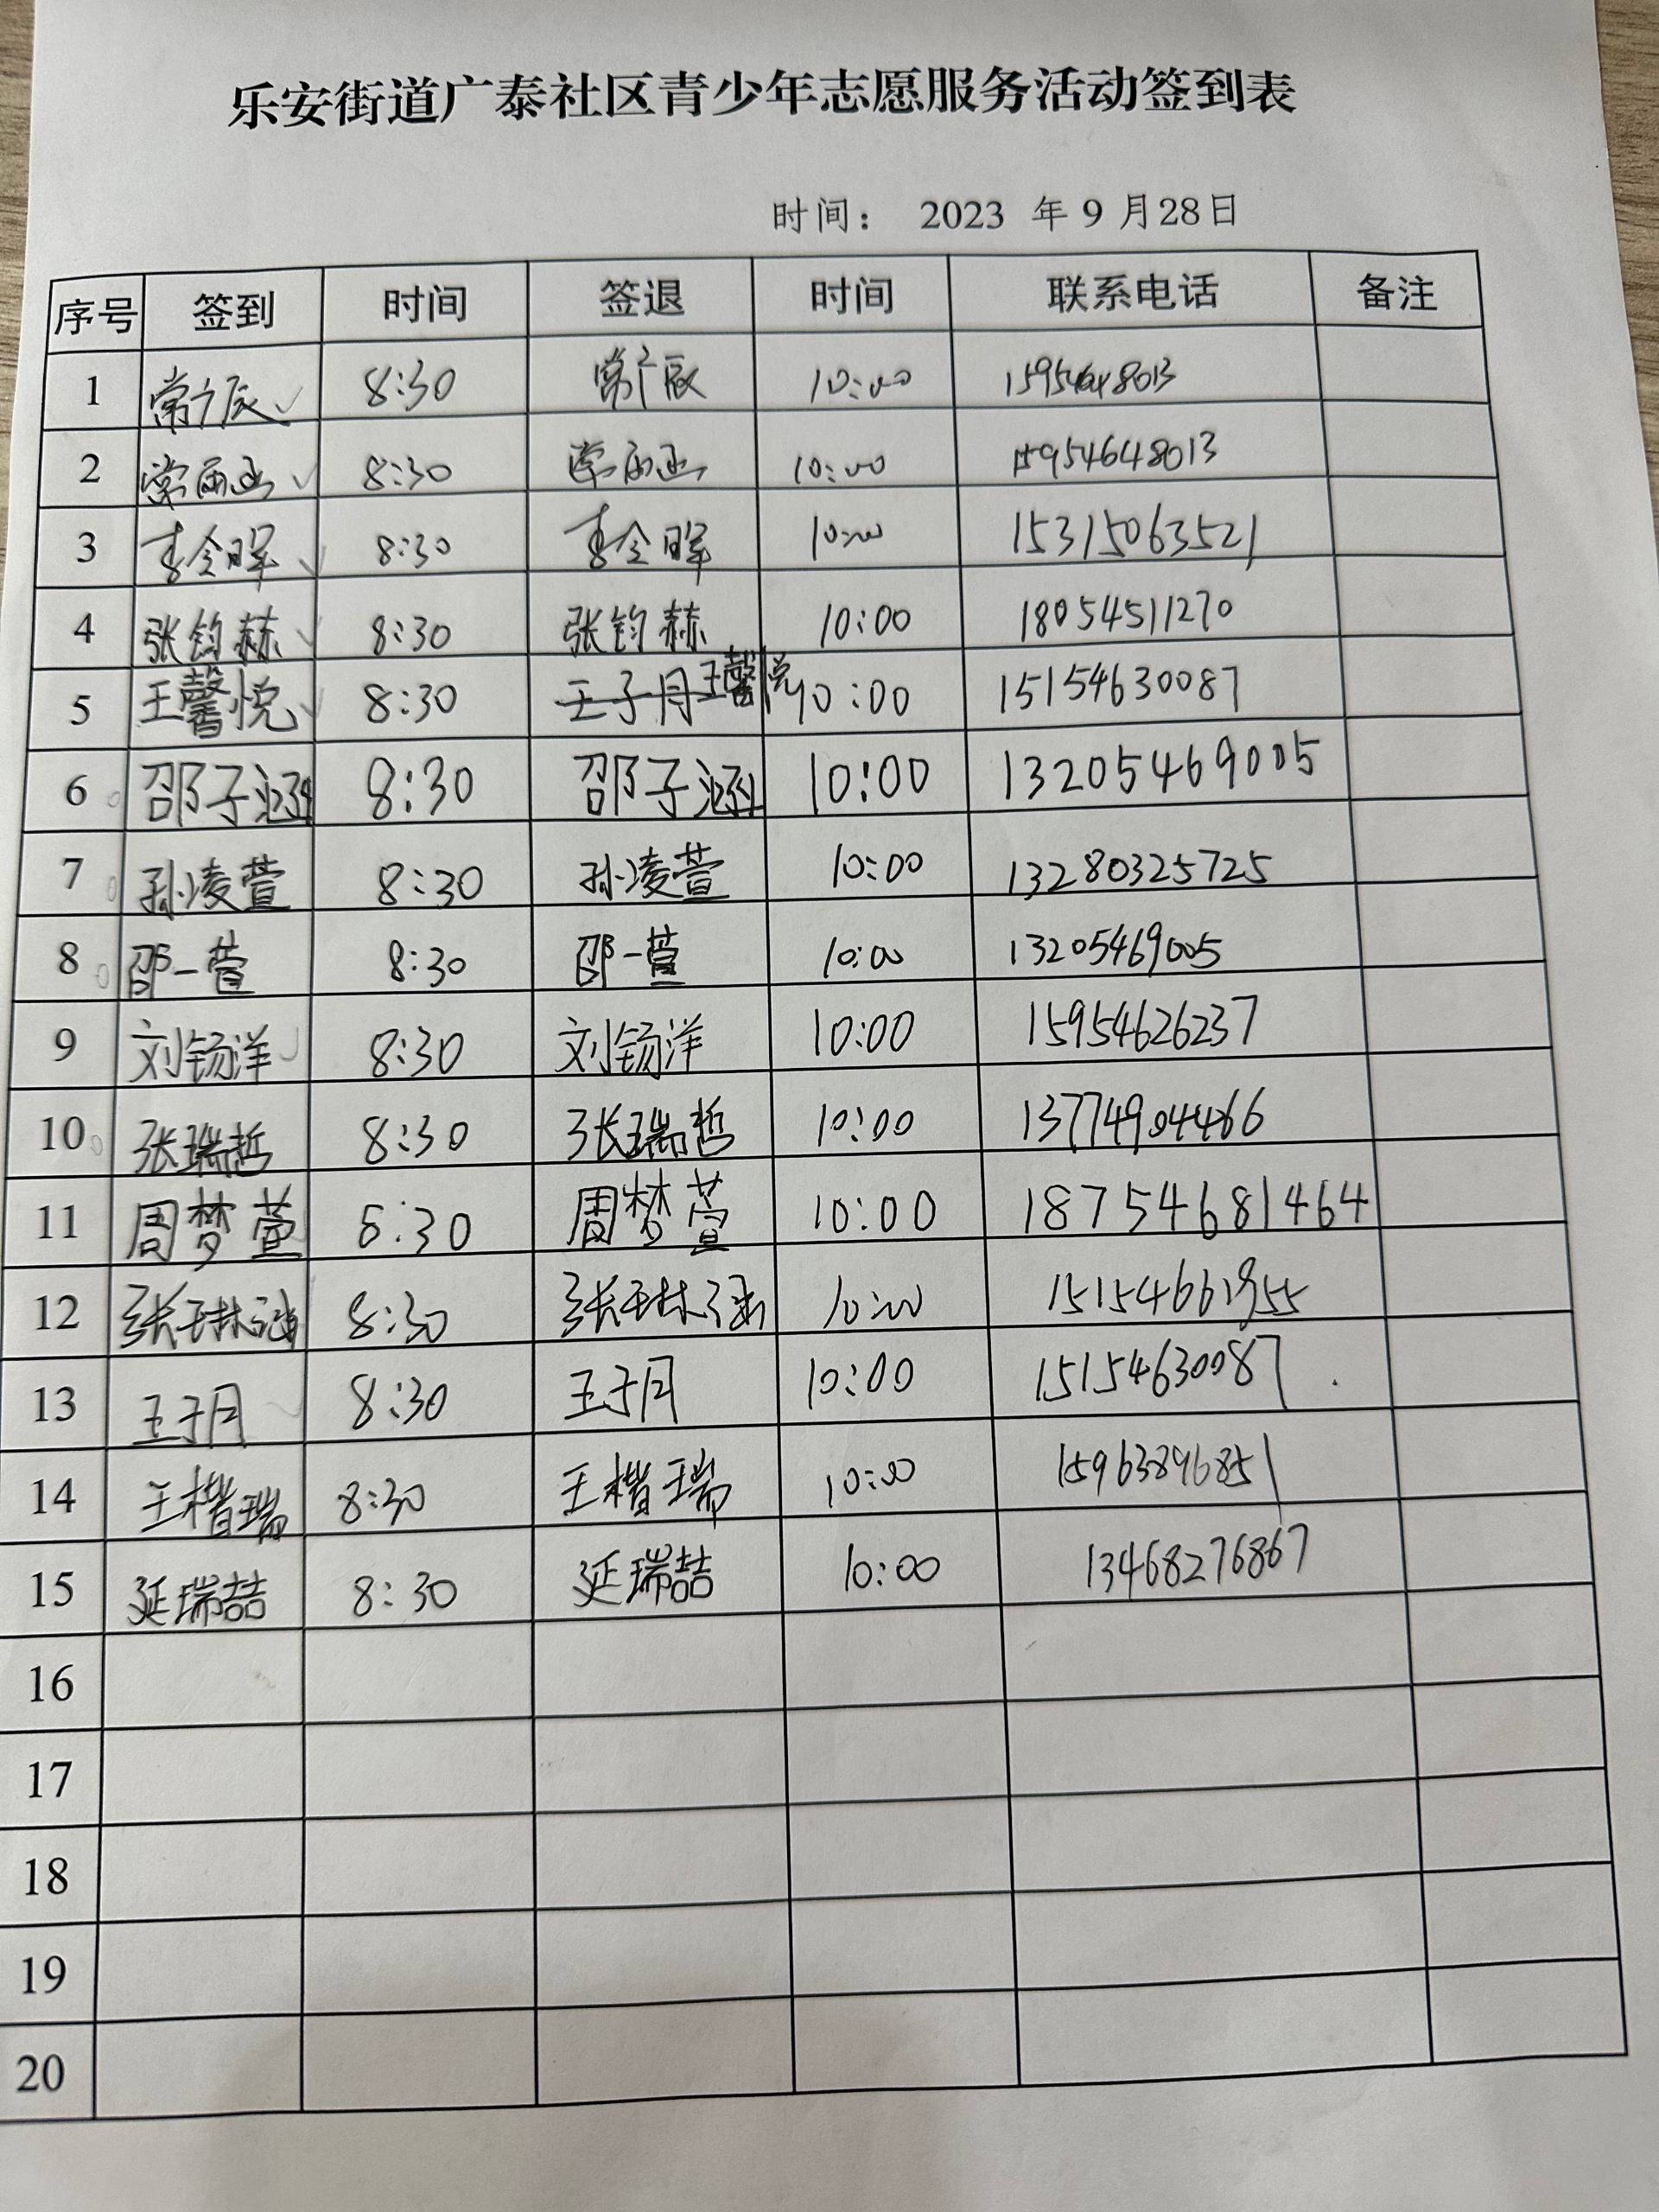 乐安街道广泰社区青少年志愿服务活动签到表
时间： 2023 年 9 月28日
序号 签到 时间 签退 时间 联系电话 备注
1 常广辰 8:30 常广辰 10:00
2 8:30 10:00 15954648013
3 李令晖 8:30 李令晖 10:00 15315063521
4 张钧赫 8:30 张钧赫 10:00 18054511270
5 王馨悦 8:30 王子月 王馨悦 10:00 15154630087
6 邵子涵 8:30 邵子涵 10:00 13205469005
7 孙凌萱 8:30 孙凌萱 10:00 13280325725
8 邵一萱 8:30 邵一萱 10:00 13205469005
9 刘钖洋 8:30 刘钖洋 10:00 15954626237
10 张瑞哲 8:30 张瑞哲 10:00 13774904466
11 周梦萱 8:30 周梦萱 10:00 18754681464
12 张琳涵 8:30 张琳涵 10:00
13 王子月 8:30 王子月 10:00 15154630087
14 王楷瑞 8:30 王楷瑞 10:00 15963896851
15 延瑞喆 8:30 延瑞喆 10:00 13468276867
16
17
18
19
20